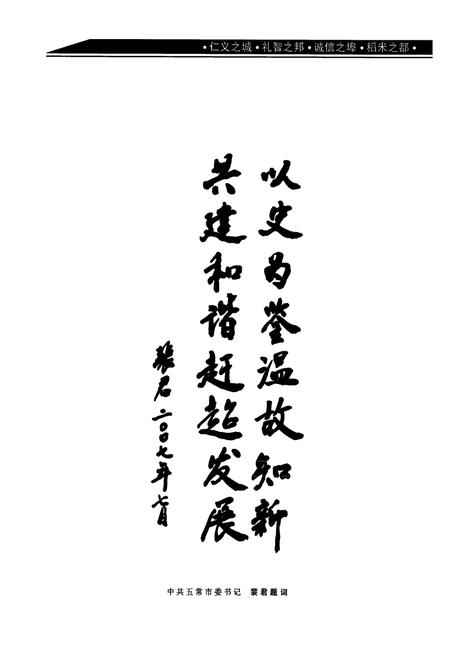 ·仁义之城·礼智之邦·诚信之埠·稻米之都·
以史为鉴温故知新
共建和谐赶超发展
裴君 二〇〇七年七月
中共五常市委书记 裴君题词